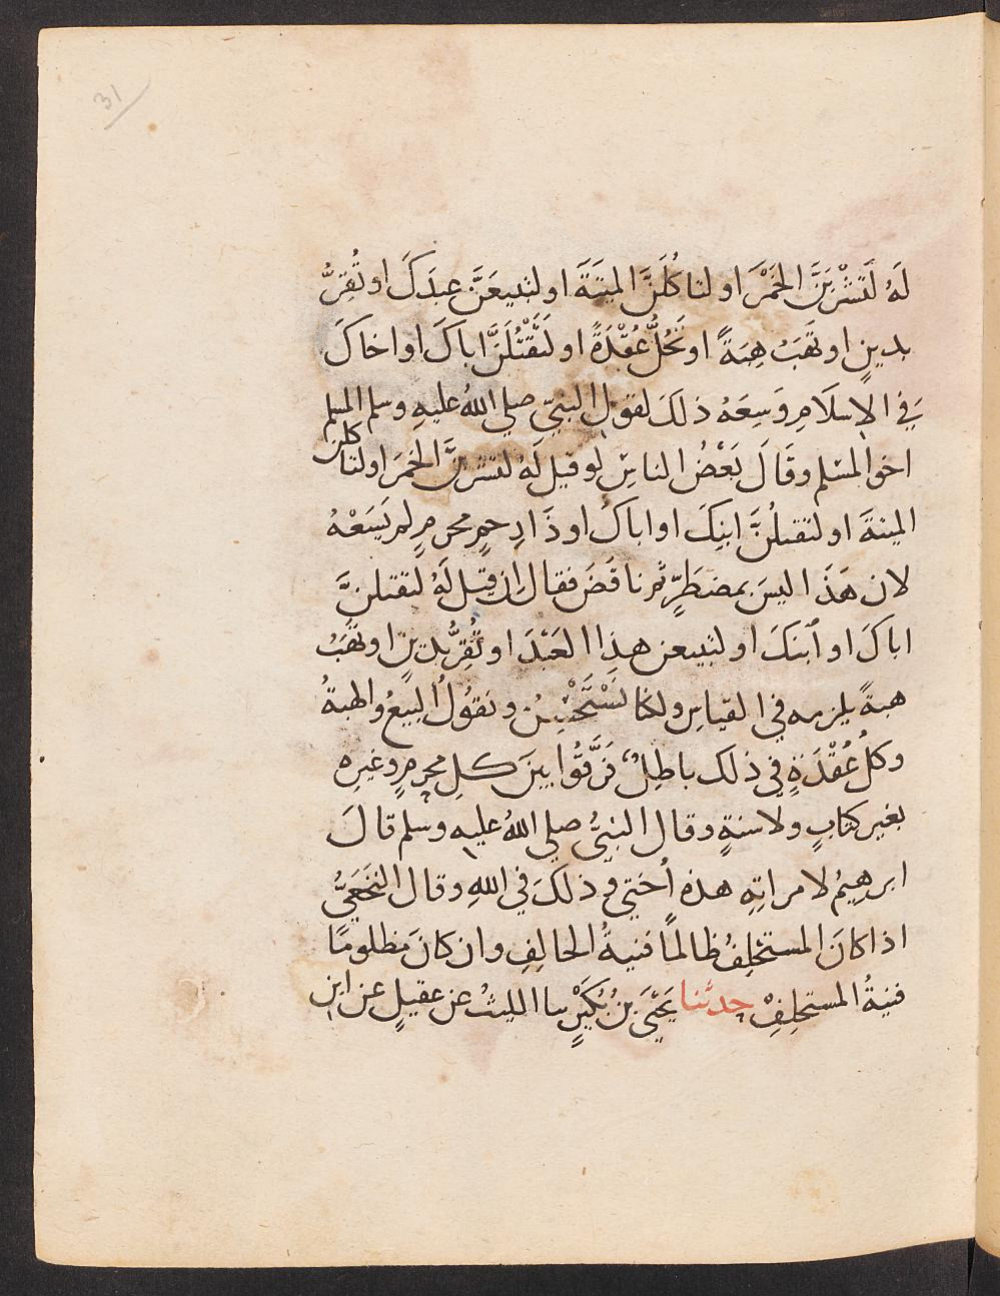 31
لَهُ لَتَشْرَبَنَّ الخَمْرَ او لتاكُلَنَّ الميتَةَ او لتبيعَنَّ عبدَكَ او تُقِرُّ
بدينٍ او تَهَبُ هِبَةً او تَحُلُّ عُقْدَةً او لَتَقْتُلَنَّ اباكَ او اخاكَ
في الاسلَامِ وَسِعَهُ ذلكَ لقول النبيّ صلى اللهُ عليهِ وسلم المسلم
اخوا لمسْلم وقَالَ بَعْضُ الناسِ لو قيلَ لَهُ لتشربَنَّ الخمرَ او لتاكلن
الميتةَ او لتقتلُنَّ ابنكَ او اباكَ او ذَا رحمٍ محرمٍ لم يَسَعْهُ
لان هَذَا ليسَ بمضطَرٍّ ثم ناقَضَ فقال ان قيلَ لَهُ لتقتلنَّ
اباكَ او ابنكَ او لتبيعن هذا العَبْدَ او تُقِرُّ بدينٍ او تَهَبُ
هبةً يلزمه في القياسِ ولكنا نَسْتَحْسِنُ ونقُولُ البيعُ والهبةُ
وكلُ عُقْدَةٍ في ذلك باطِلٌ فَرَّقُوا بينَ كلِ محرمٍ وغيرِهِ
بغير كتابٍ ولا سنةٍ وقال النبيُّ صلى اللهُ عليه وسلم قالَ
ابرهيمُ لامراتِهِ هذه أُختي وذلكَ في اللهِ وقال النخَعيُّ
اذا كانَ المستحْلِفُ ظالمًا فنيةُ الحالِفِ وان كانَ مظلومًا
فنيةُ المستحلِفِ حدثنا يَحْيَى بنُ بُكَيْرٍ نا الليثُ عن عقيلٍ عن ابنِ